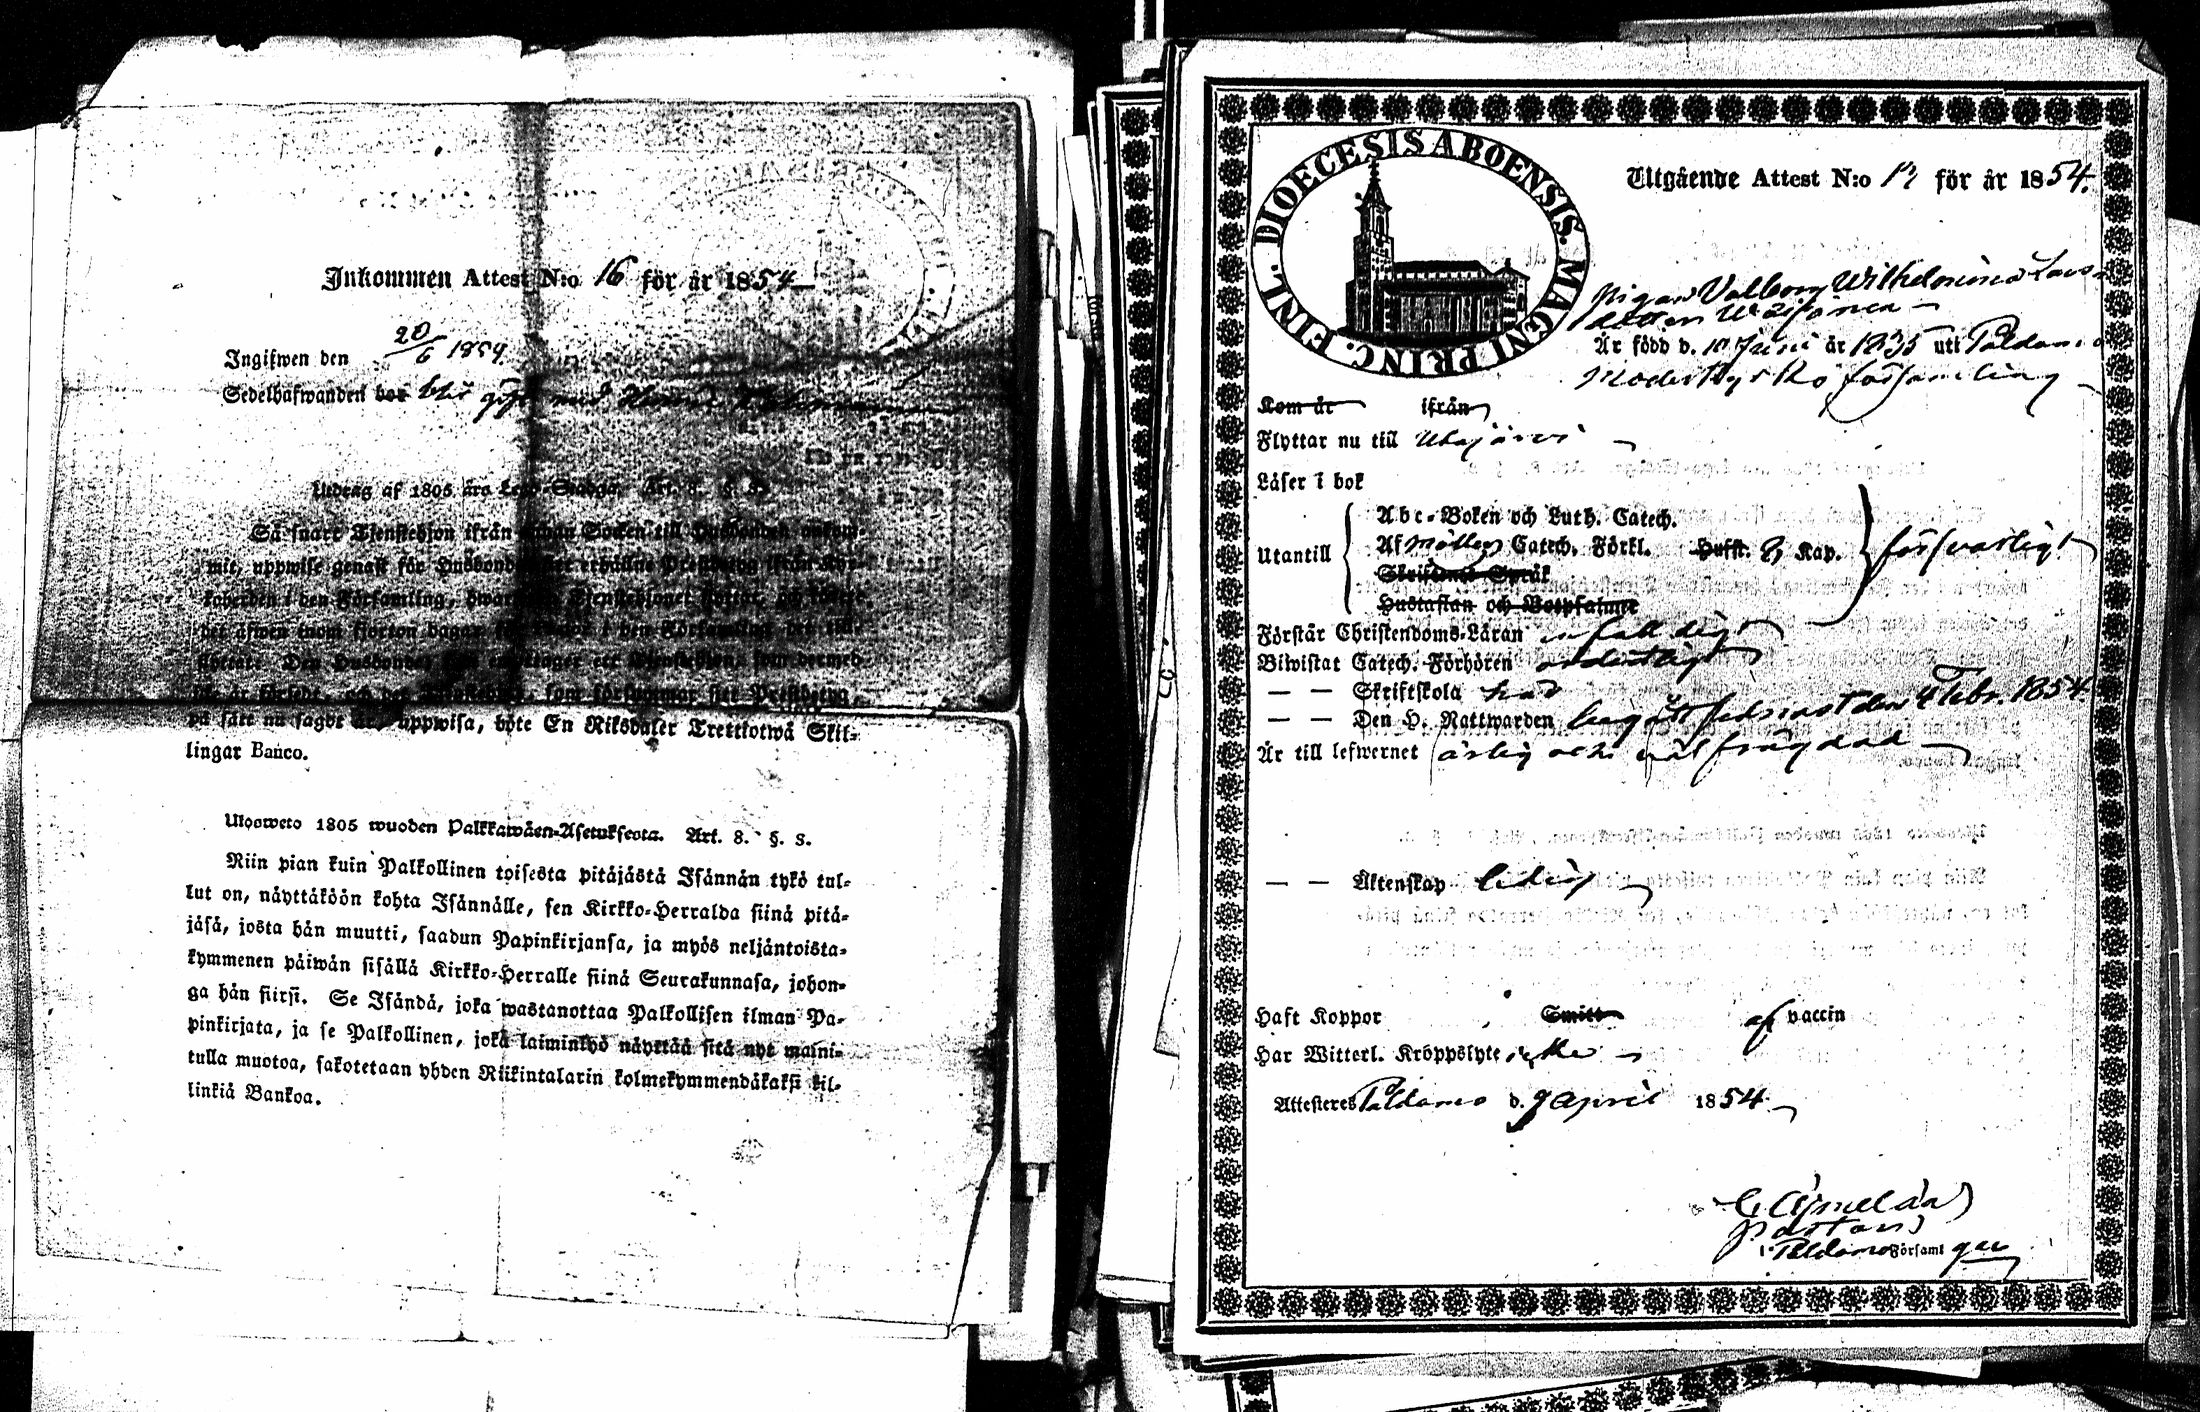 Inkommen Attest N:o 16 för år 1854
Ingifwen den 20/6 1854
Sedelhafwanden bor blir gift med
Utdrag af 1805 års Lego-Stadga. Art. 8. §. 3.
Så snart Tjenstehjon ifrån annan Socken till Husbonden ankom-
mit, uppwise genast för Husbonden det erhållne Prestbetyg ifrån Kyr-
koherden i den Församling, hwarifrån Tjenstehjonet flyttat, och
det äfwen inom fjorton dagar för i den Församling det till-
flyttat. Den Husbonde, som emottager ett Tjenstehjon, som dermed
är försedt, och det Tjenstehjon, som försummar sitt Prestbetyg,
på sätt nu sagdt är, uppwisa, böte En Riksdaler Trettiotwå Skil-
lingar Banco.
Ulosweto 1805 wuoden Palkkawäen-Asetuksesta. Art. 8. §. 3.
Niin pian kuin Palkollinen toisesta pitäjästä Isännän tykö tul-
lut on, näyttäköön kohta Isännälle, sen Kirkko-Herralda siinä pitä-
jäsä, josta hän muutti, saadun Papinkirjansa, ja myös neljäntoista-
kymmenen päiwän sisällä Kirkko-Herralle siinä Seurakunnasa, johon-
ga hän siirsi. Se Isändä, joka wastanottaa Palkollisen ilman Pa-
pinkirjata, ja se Palkollinen, joka laiminlyö näyttää sitä nyt maini-
tulla muotoa, sakotetaan yhden Riikintalarin kolmekymmendäkaksi kil-
linkiä Bankoa.
DIOECESIS ABOENSIS. MAGNI PRINC. FINL.
Utgående Attest N:o för år 1854.
Pigan Valborg Wilhelmina Lars-
dotter Wäisänen
Är född d. 10 Juni år 1835 uti Paldamo
Moderkyrko församling
Kom år ifrån
Flyttar nu till Utajärvi
Läser i bok
Utantill
Abc-Boken och Luth. Catech.
Af Möllers Catech. Förkl. Hufst. 2, Kap. försvarligt
Skriftens Språk
Hustaflan och Botpsalmer
Förstår Christendoms-Läran enfaldigt
Biwistat Catech. Förhören ordentligt
— — Skriftskola har
— — Den H. Nattwarden begått sednast den 4 Febr. 1854
Är till lefwernet ärlig och väl frägdad
— — Äktenskap ledig
Haft Koppor Smitt af vaccin
Har Witterl. Kroppslyte icke
Attesteres Paldamo d. 9 April 1854.
Pastor
i Paldamo Församl gar